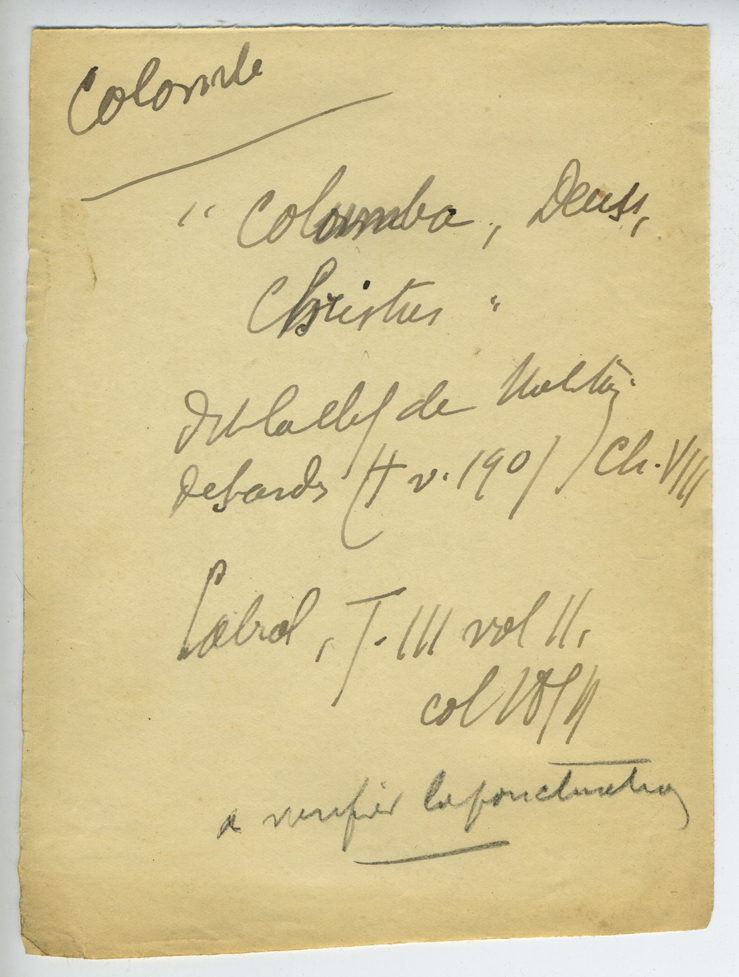 Colombe
" Colomba, Deus,
Christus "
dit la clef de Meliton
de Sardes († v. 190) Ch. VIII
Cabrol, T. III vol II,
col
a verifier la ponctuation